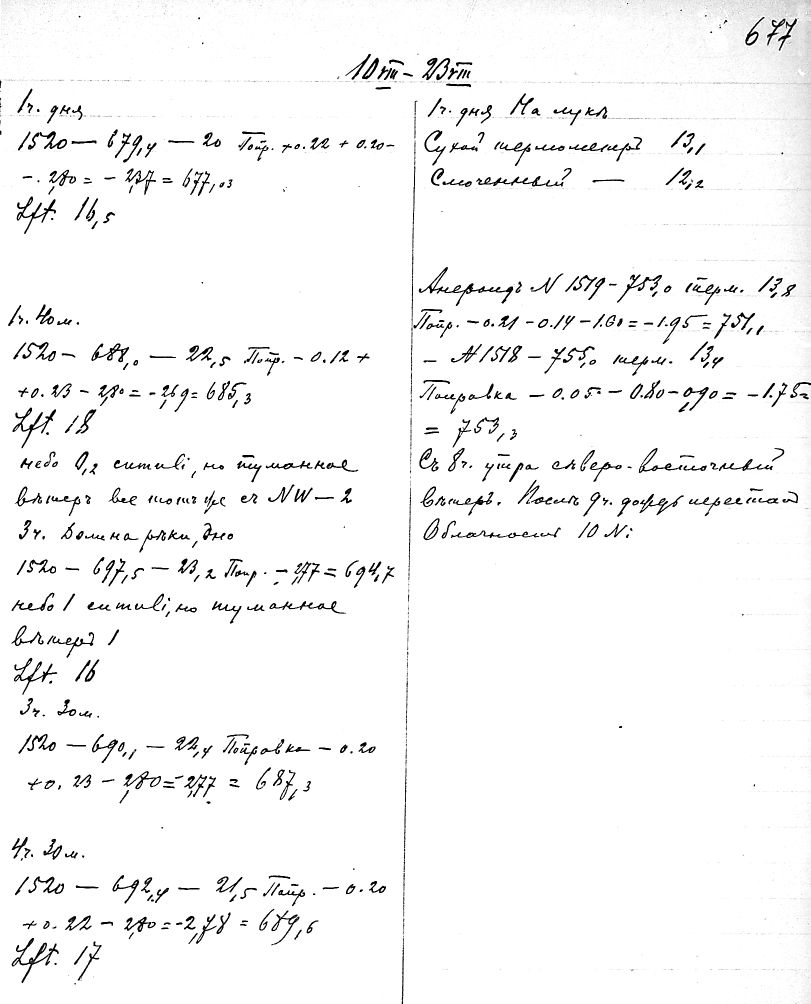 677
10 VIII – 23 VIII
1ч. дня
1520 — 679,4 — 20 Попр. +0.22 + 0.20 –
– 2,80 = – 2,37 = 677,03
Lft. 16,5
1ч. 40м.
1520 — 688,0 — 22,5 Попр. – 0.12 +
+0.23 – 2,80 = –2,69 = 685,3
Lft. 18
небо 0,2 cumuli, но туманное
вѣтеръ все тотъ же съ NW — 2
3ч. Долина рѣки, дно
1520 — 697,5 — 23,2 Попр. – 2,77 = 694,7
небо 1 cumuli, но туманное
вѣтеръ 1
Lft. 16
3ч. 30м.
1520 — 690,1 — 22,4 Поправка – 0.20
+0.23 – 2,80 = –2,77 = 687,3
4ч. 30м.
1520 — 692,4 — 21,5 Попр. – 0.20
+0.22 – 2,80 = –2,78 = 689,6
Lft. 17
1ч. дня На лукѣ
Сухой термометръ 13,1
Смоченный — 12,2
Анероидъ N 1519 – 753,0 терм. 13,8
Попр. – 0.21 – 0.14 – 1.60 = –1.95 = 751,1
– N 1518 – 755,0 терм. 13,4
Поправка – 0.05 – 0.80 – 0,90 = –1.75 =
= 753,3
Съ 8ч. утра сѣверо-восточный
вѣтеръ. Послѣ 9ч. дождь пересталъ
Облачность 10 Ni